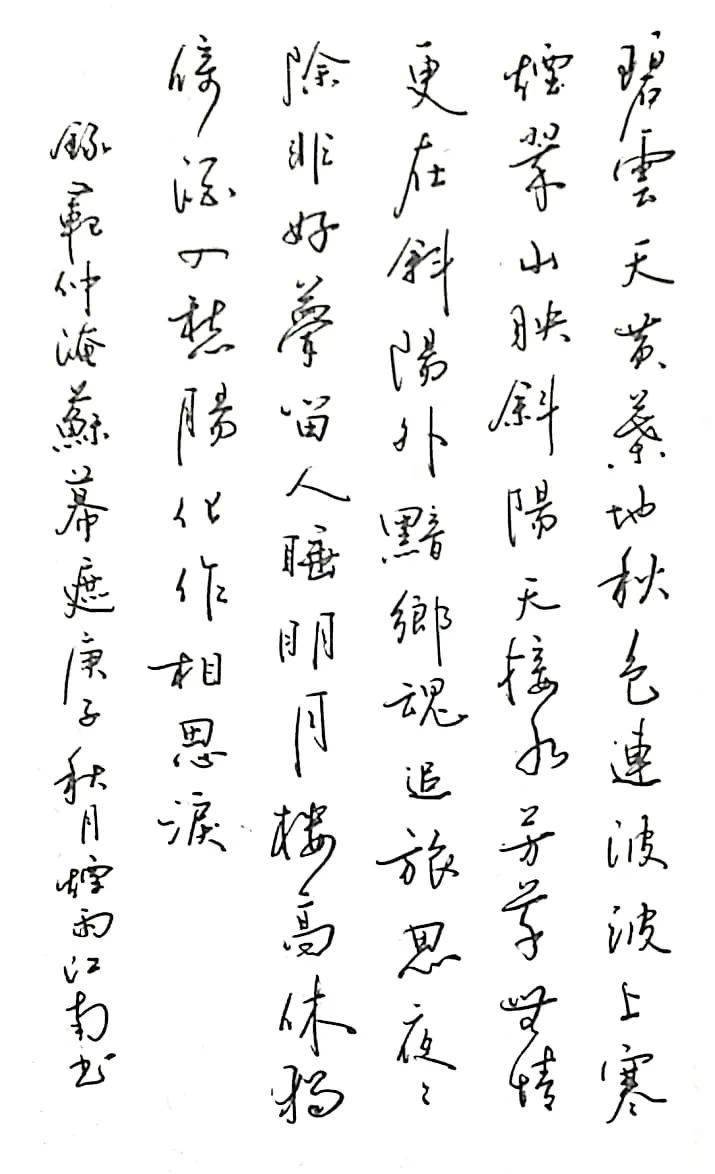 碧雲天黃葉地秋色連波波上寒
煙翠山映斜陽天接水芳草無情
更在斜陽外黯鄉魂追旅思夜〻
除非好夢留人睡明月樓高休獨
倚酒入愁腸化作相思淚
錄範仲淹蘇幕遮庚子秋月煙雨江南書